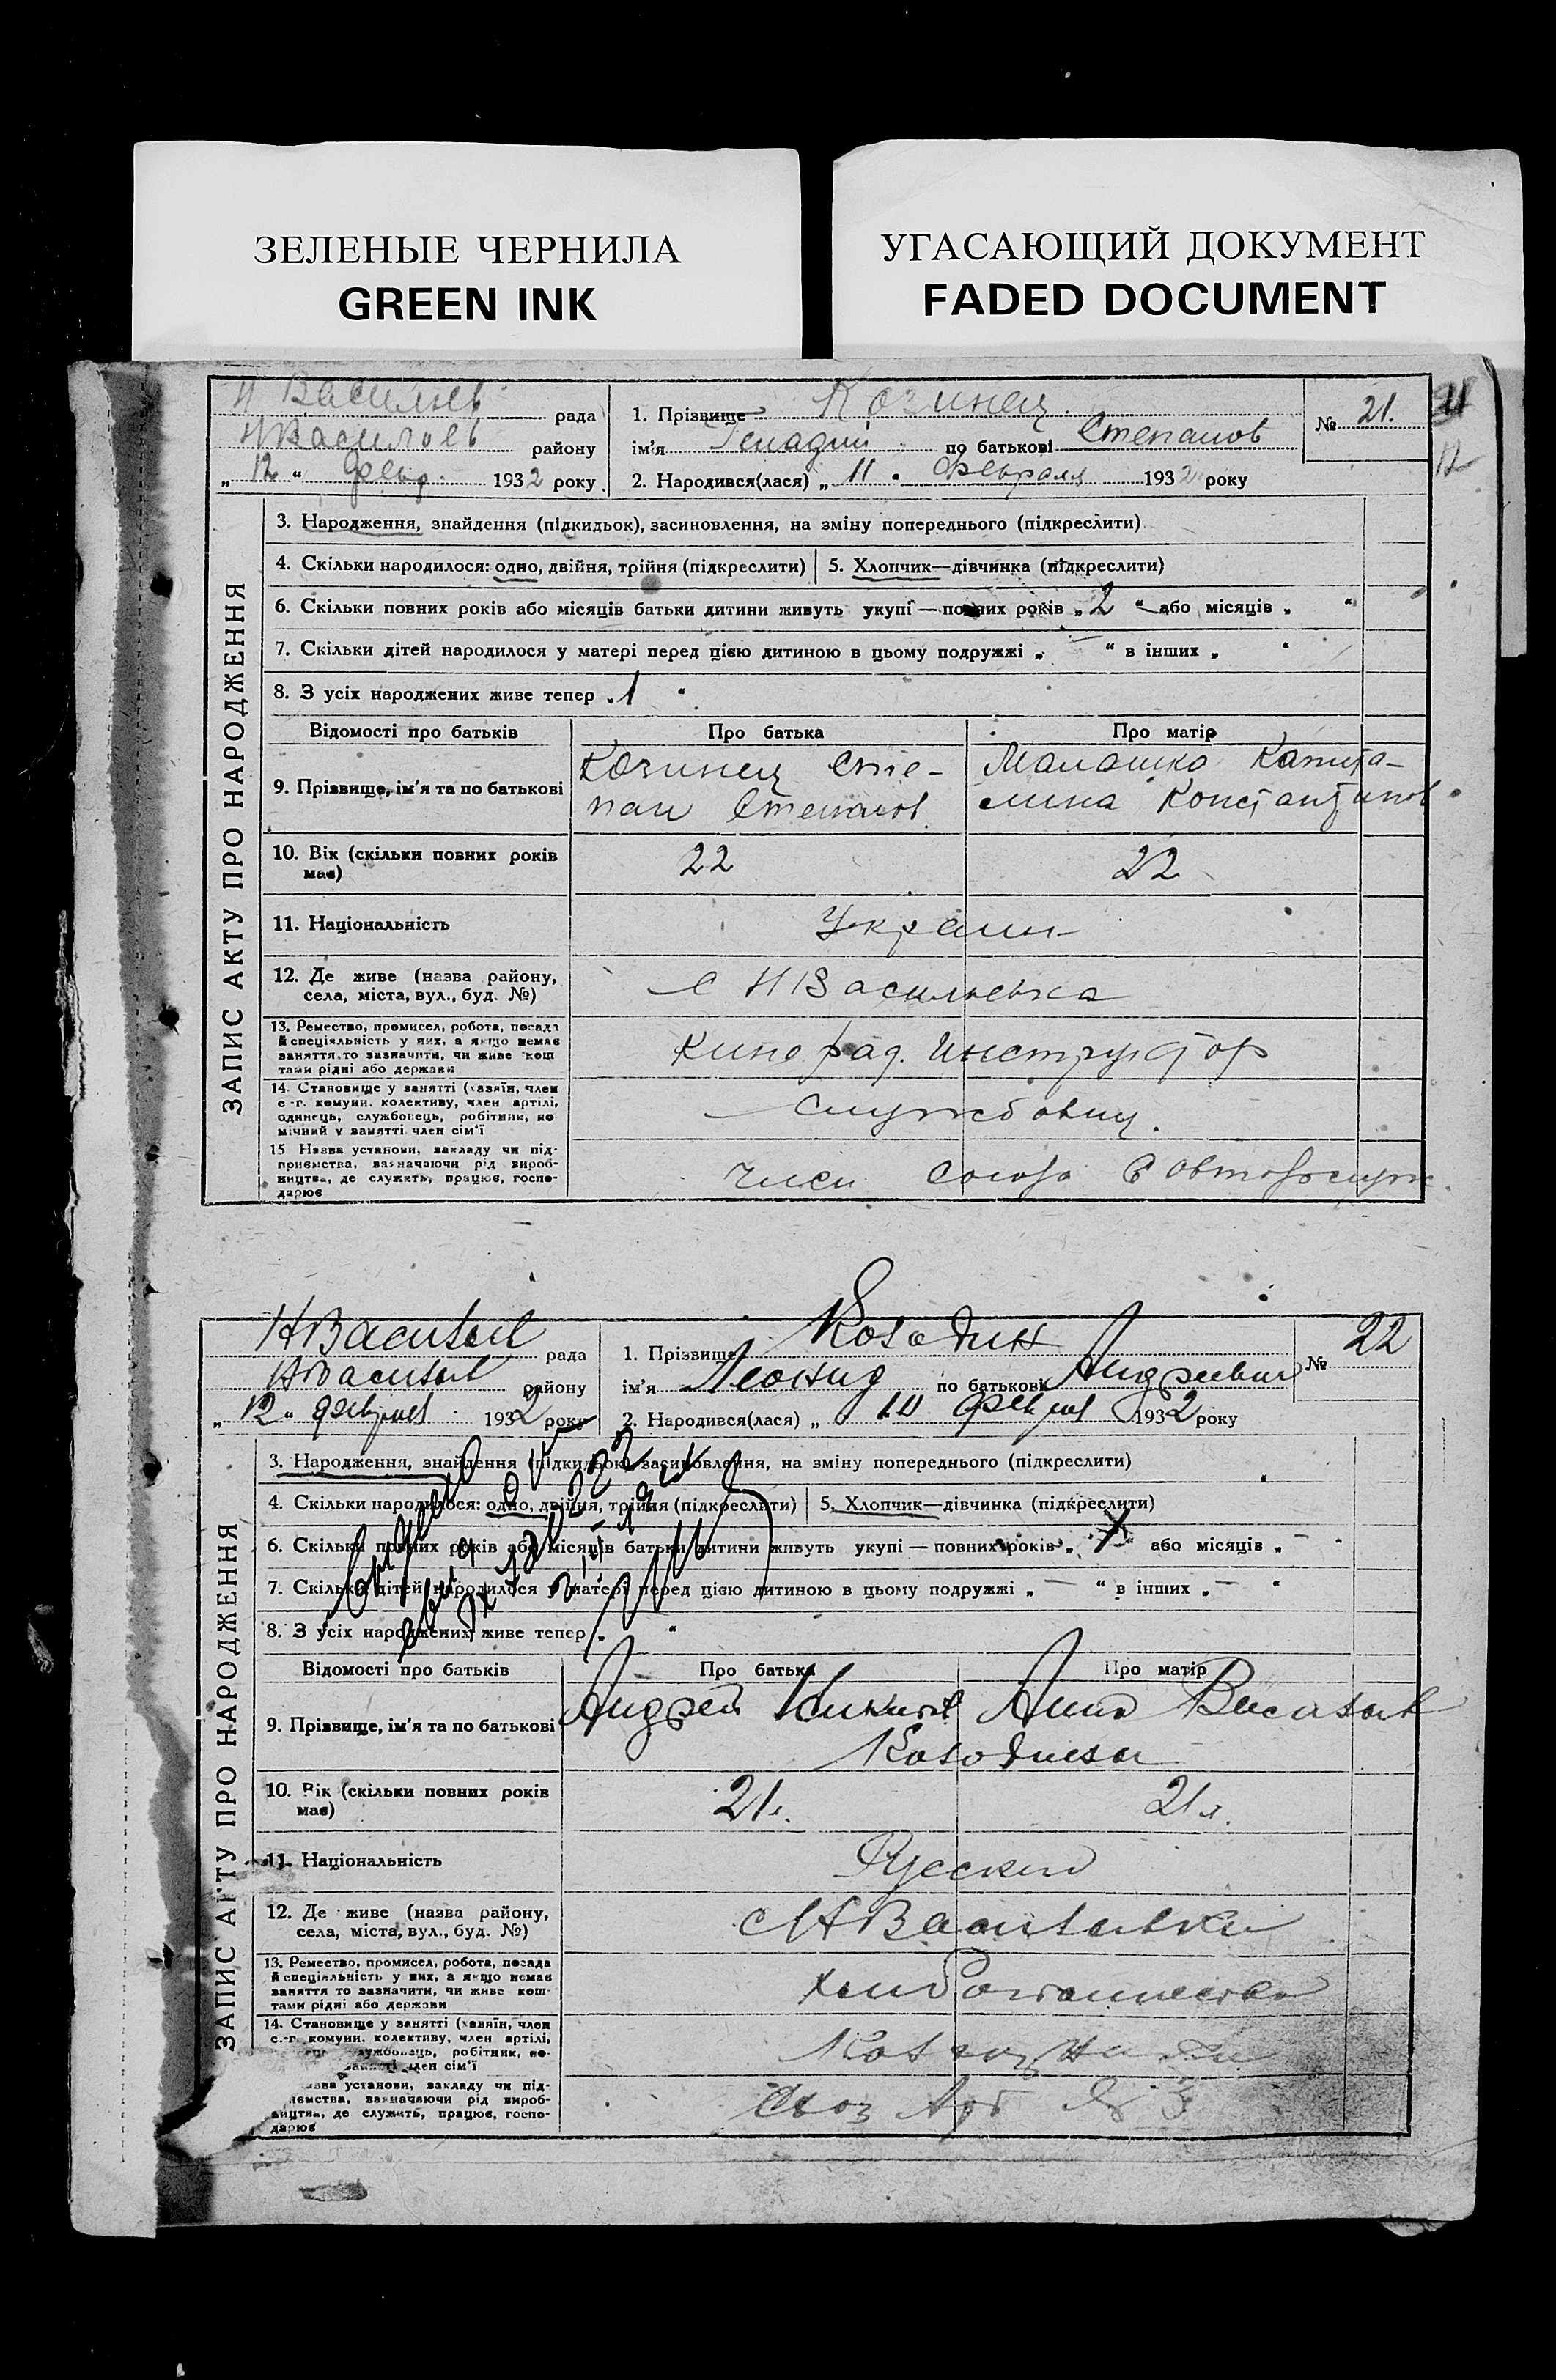 ЗЕЛЕНЫЕ ЧЕРНИЛА
GREEN INK
УГАСАЮЩИЙ ДОКУМЕНТ
FADED DOCUMENT
Н Васильев рада
НВасильев району
„ 12 “ Февр. 1932 року
1. Прізвище Козинец
ім'я Генадий по батькові Степанов
2. Народився(лася) „ 11 “ Февраля 1932 року
№ 21.
12
ЗАПИС АКТУ ПРО НАРОДЖЕННЯ
3. Народження, знайдення (підкидьок), засиновлення, на зміну попереднього (підкреслити)
4. Скільки народилося: одно, двійня, трійня (підкреслити)
5. Хлопчик—дівчинка (підкреслити)
6. Скільки повних років або місяців батьки дитини живуть укупі — повних років „ 2 “ або місяців „ “
7. Скільки дітей народилося у матері перед цією дитиною в цьому подружжі „ — “ в інших „ “
8. З усіх народжених живе тепер „ 1 “
Відомості про батьків Про батька Про матір
9. Прізвище, ім'я та по батькові
Козинец Сте-
пан Степанов
Малашко Капита-
лина Константинов
10. Вік (скільки повних років має) 22 22
11. Національність Украин
12. Де живе (назва району, села, міста, вул., буд. №) с НВасильевка
13. Ремество, промисел, робота, посада й спеціяльність у них, а якщо немає заняття, то зазначити, чи живе кош тами рідні або держави
Кино рад. Инструктор
14. Становище у занятті (хазяїн, член с.-г. комуни. колективу, член артілі, одинець, службовець, робітник, по мічний у занятті член сім'ї
Службовец.
15 Назва установи, закладу чи під- приємства, зазначаючи рід вироб- ництва, де служить, працює, госпо- дарює
Член Союза
НВасильев рада
НВасильев району
„ 12 “ февраля 1932 року
1. Прізвище Колодин
ім'я Леонид по батькові Андреевич
2. Народився(лася) „ 10 февраля 1932 року
№ 22
ЗАПИС АКТУ ПРО НАРОДЖЕННЯ
3. Народження, знайдення (підкидьок) засиновлення, на зміну попереднього (підкреслити)
4. Скільки народилося: одно, двійня, трійня (підкреслити)
5. Хлопчик—дівчинка (підкреслити)
6. Скільки повних років або місяців батьки дитини живуть укупі — повних років „ 1 “ або місяців „ — “
7. Скільки дітей народилося у матері перед цією дитиною в цьому подружжі „ — “ в інших „ — “
8. З усіх народжених живе тепер „ “
Відомості про батьків Про батька Про матір
9. Прізвище, ім'я та по батькові
Андрей Никитов Анна Васильев
10. Вік (скільки повних років має) 21 л. 21 л.
11. Національність Русский
12. Де живе (назва району, села, міста, вул., буд. №) с НВасильевка
13. Ремество, промисел, робота, посада й спеціяльність у них, а якщо немає заняття то зазначити, чи живе кош- тами рідні або держави
14. Становище у занятті (хазяїн, член с.-г. комуни. колективу, член артілі, службовець, робітник, по- член сім'ї
установи, закладу чи під- зазначаючи рід вироб- де служить, працює, госпо- дарює